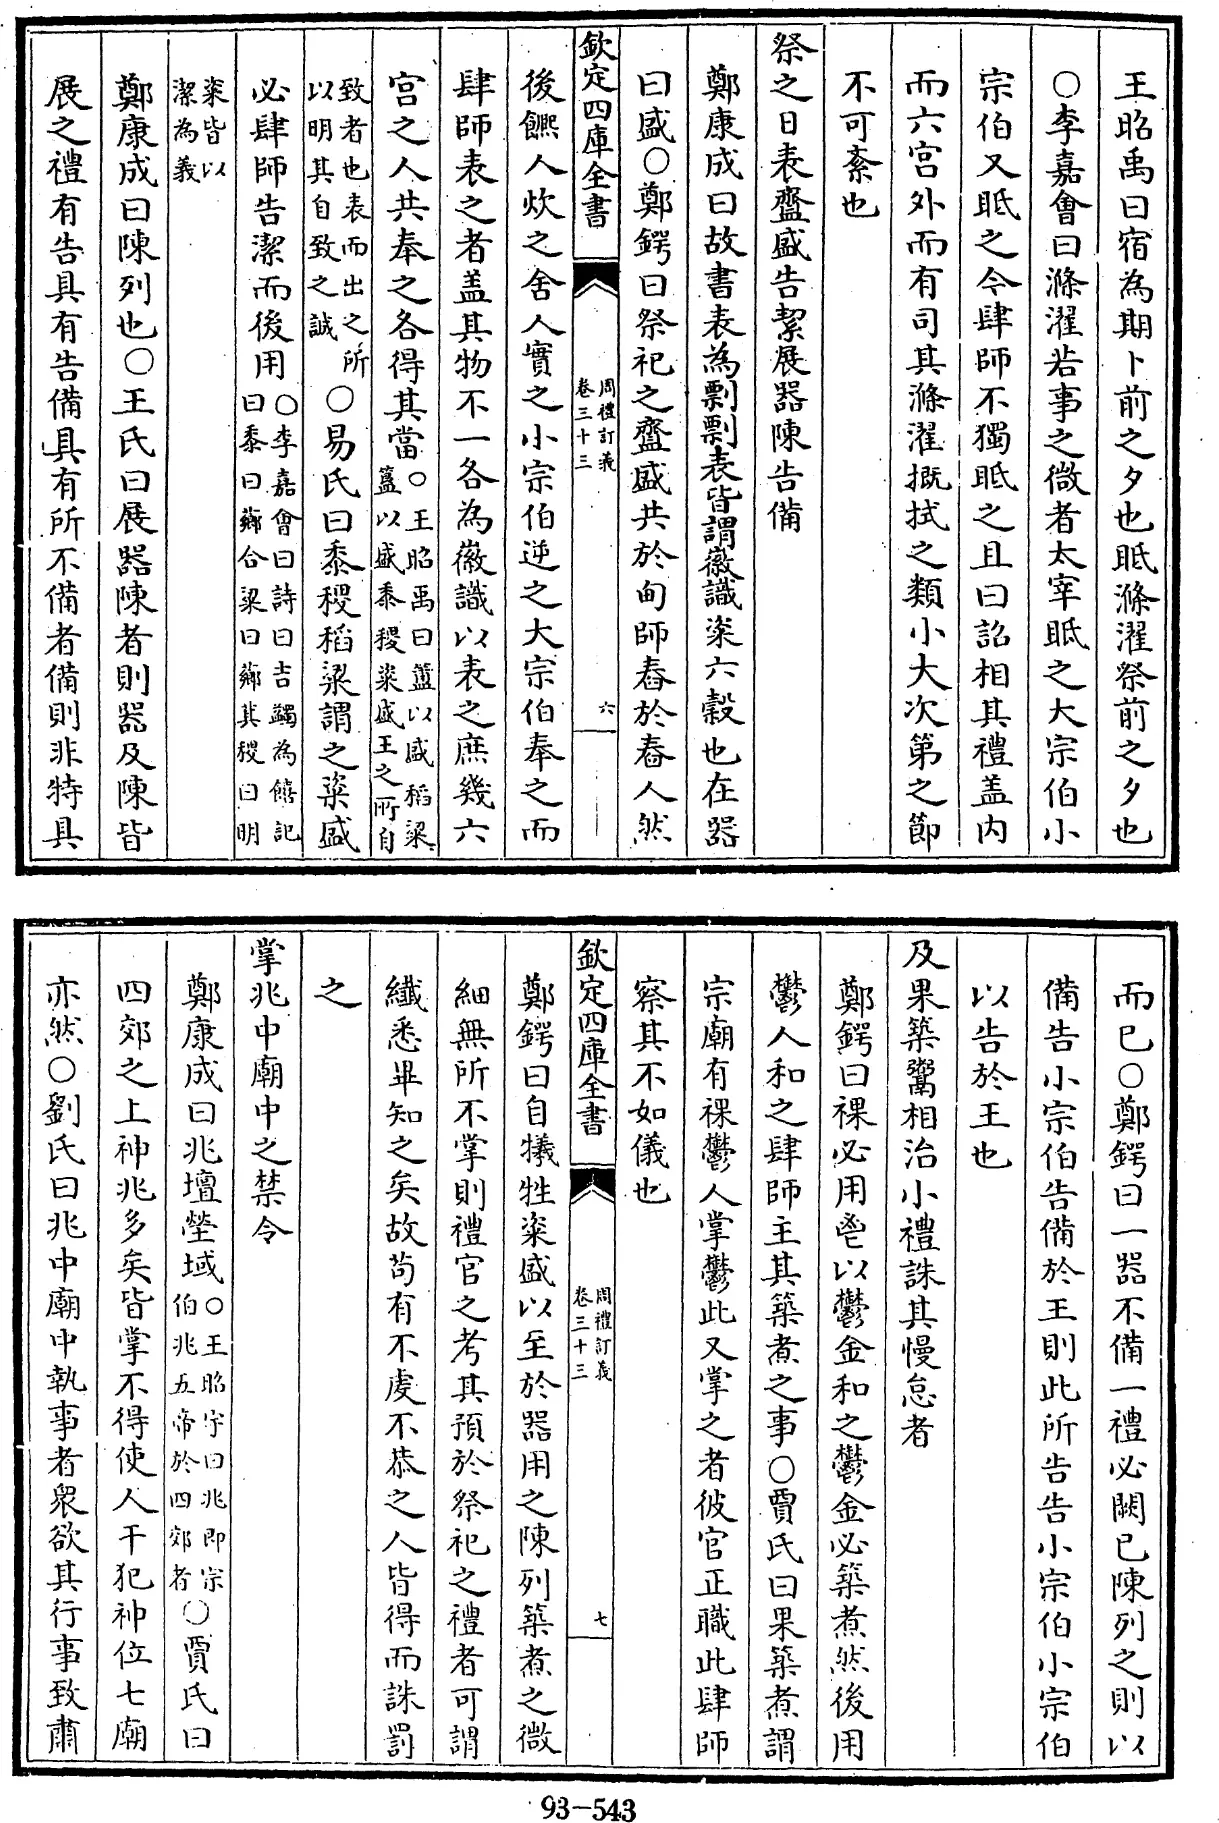 王昭禹曰宿為期卜前之夕也眡滌濯祭前之夕也
○李嘉會曰滌濯若事之微者太宰眡之大宗伯小
宗伯又眡之今肆師不獨眡之且曰詔相其禮蓋内
而六宫外而有司其滌濯摡拭之類小大次第之節
不可紊也
祭之日表齍盛告絜展器陳告備
鄭康成曰故書表為剽剽表皆謂徽識粢六穀也在器
曰盛○鄭鍔曰祭祀之齍盛共於甸師舂於舂人然
欽定四庫全書
周禮訂義
卷三十三
六
後饎人炊之舍人實之小宗伯逆之大宗伯奉之而
肆師表之者蓋其物不一各為徽識以表之庶幾六
宫之人共奉之各得其當○王昭禹曰簠以盛稻粱
簋以盛黍稷粢盛王之所自
致者也表而出之所
以明其自致之誠○易氏曰黍稷稻粱謂之粢盛
必肆師告潔而後用○李嘉會曰詩曰吉蠲為饎記
曰黍曰薌合粱曰薌萁稷曰明
粢皆以
潔為義
鄭康成曰陳列也○王氏曰展器陳者則器及陳皆
展之禮有告具有告備具有所不備者備則非特具
而已○鄭鍔曰一器不備一禮必闕已陳列之則以
備告小宗伯告備於王則此所告告小宗伯小宗伯
以告於王也
及果築鬻相治小禮誅其慢怠者
鄭鍔曰祼必用鬯以鬱金和之鬱金必築煮然後用
鬱人和之肆師主其築煮之事○賈氏曰果築煮謂
宗廟有祼鬱人掌鬱此又掌之者彼官正職此肆師
察其不如儀也
欽定四庫全書
周禮訂義
卷三十三
七
鄭鍔曰自犧牲粢盛以至於器用之陳列築煮之微
細無所不掌則禮官之考其預於祭祀之禮者可謂
纎悉畢知之矣故苟有不虔不恭之人皆得而誅罰
之
掌兆中廟中之禁令
鄭康成曰兆壇塋域○王昭宇曰兆即宗
伯兆五帝於四郊者○賈氏曰
四郊之上神兆多矣皆掌不得使人干犯神位七廟
亦然○劉氏曰兆中廟中執事者衆欲其行事致肅
93-543